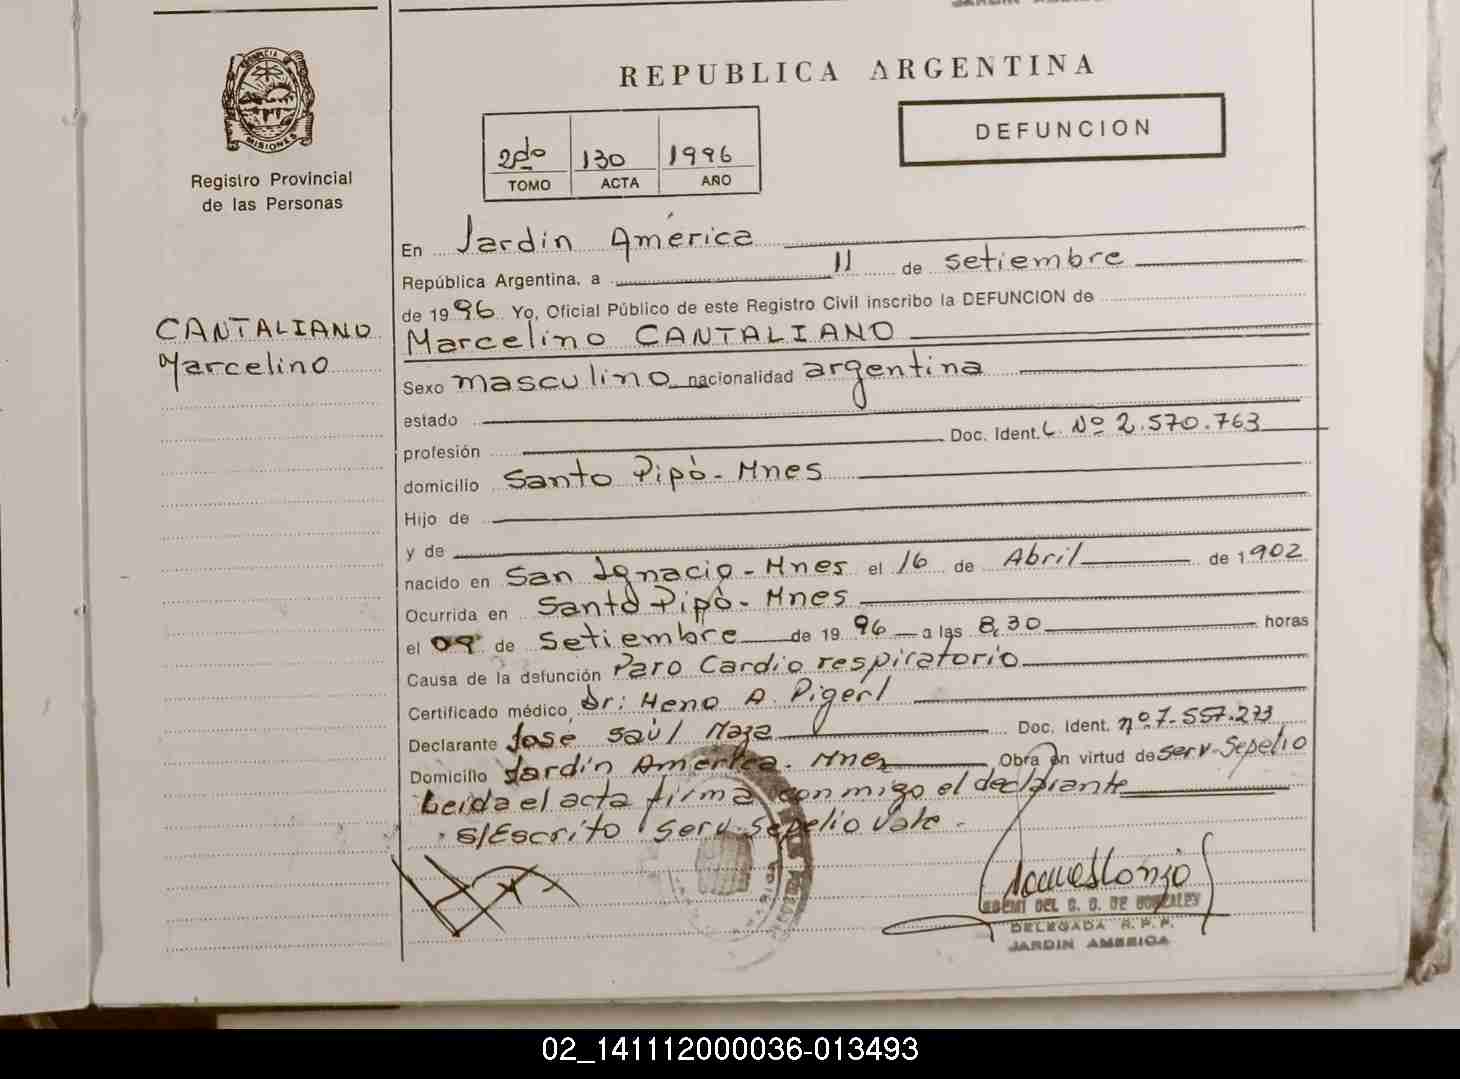 REPUBLICA ARGENTINA
PROVINCIA DE
MISIONES
Registro Provincial
de las Personas
2do 130 1996
TOMO ACTA AÑO
DEFUNCION
En Jardín América
República Argentina, a 11 de setiembre
de 1996 Yo, Oficial Público de este Registro Civil inscribo la DEFUNCION de
CANTALIANO
Marcelino
Marcelino CANTALIANO
Sexo masculino nacionalidad argentina
estado
profesión Doc. Ident. L. Nº 2.570.763
domicilio Santo Pipó - Mnes
Hijo de
y de
nacido en San Ignacio - Mnes el 16 de Abril de 1902
Ocurrida en Santo Pipó - Mnes
el 09 de Setiembre de 1996 a las 8,30 horas
Causa de la defunción Paro Cardio respiratorio
Certificado médico, Dr: Heno A. Pigerl
Declarante José Saúl Maza Doc. Ident. nº 7.557.273
Domicilio Jardín América - Mnes Obra en virtud de Serv. Sepelio
Leida el acta firma conmigo el declarante
S/Escrito Serv. Sepelio Vale.
DEL C. G. DE GONZALEZ
DELEGADA R. P. P.
JARDIN AMERICA
02_141112000036-013493